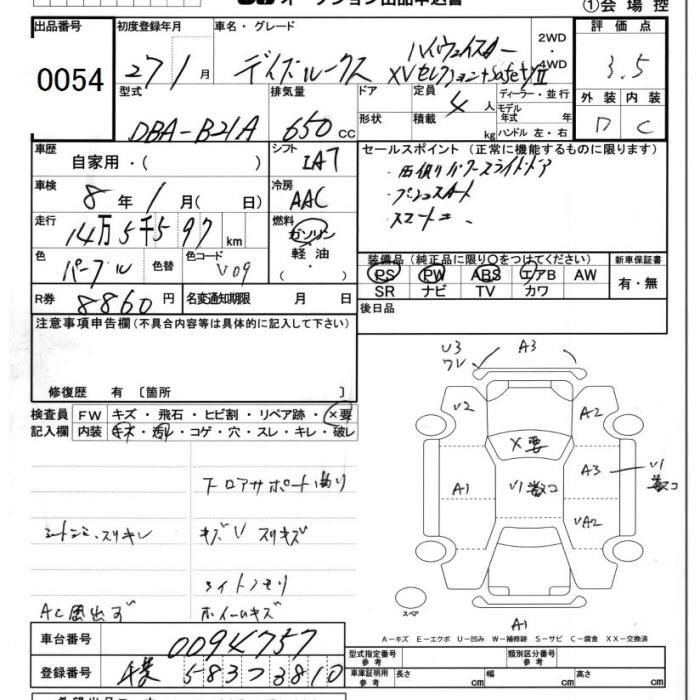 オークション出品申込書
①会場控
出品番号 初度登録年月 車名・グレード 評価点
0054 27 1 月 デイズルークス ハイウェイスター XVセレクション+SafetyⅡ 2WD・4WD 3.5
型式 排気量 ドア 定員 4 人 ディーラー・並行 外装 内装
DBA-B21A 650 cc 形状 積載 kg モデル年式 年 ハンドル 左・右 D C
車歴 自家用・( ) シフト IA7 セールスポイント(正常に機能するものに限ります)
・右側パワースライドドア
車検 8 年 1 月( 日) 冷房 AAC
プッシュスタート
走行 14万5千597 km 燃料 ガソリン・軽油・( )
スマートキー.
色 パープル 色替 色コード V09
装備品(純正品に限り○をつけてください) 新車保証書
PS PW ABS エアB AW 有・無
SR ナビ TV カワ
R券 8860 円 名変通知期限 月 日
後日品
注意事項申告欄(不具合内容等は具体的に記入して下さい)
修復歴 有〔箇所 〕
検査員記入欄 FW キズ・飛石・ヒビ割・リペア跡・×要
内装 キズ・汚れ・コゲ・穴・スレ・キレ・破レ
U3 ワレ A3
U2 A2
X要
A1 U1数コ A3 U1数コ
UA2
フロアサポート曲り
シートシミ、スリキレ キズU スリキズ
ライトクモリ
AC風出ず ホイールキズ
スペア
A1
A-キズ E-エクボ U-凹み W-補修跡 S-サビ C-腐食 XX-交換済
車台番号 0094757 型式指定番号 参考 類別区分番号 参考
登録番号 千葉 583 フ 3810 車庫証明用 参考 長さ cm 幅 cm 高さ cm